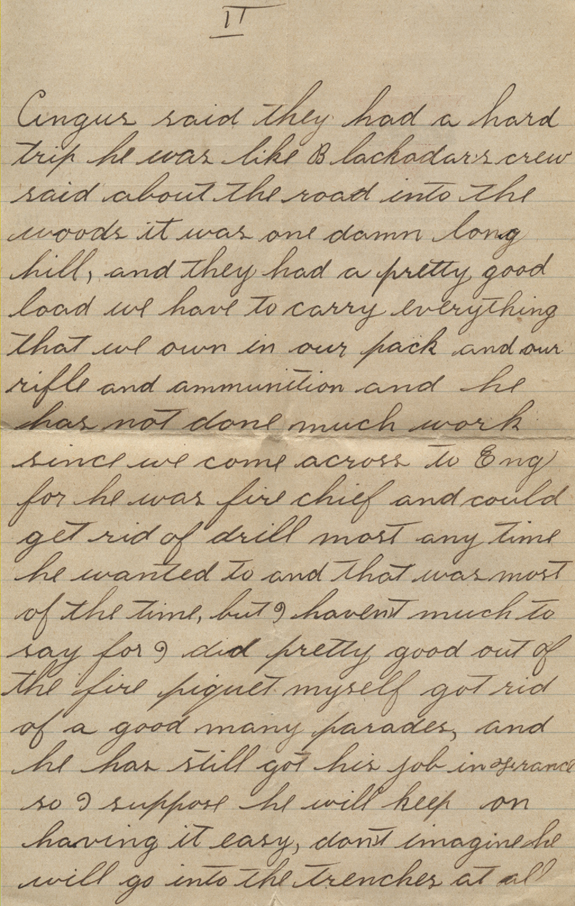 II
Angus said they had a hard
trip he was like Blackadar's crew
said about the road into the
woods it was one damn long
hill, and they had a pretty good
load we have to carry everything
that we own in our pack and our
rifle and ammunition and he
has not done much work
since we come across to Eng
for he was fire chief and could
get rid of drill most any time
he wanted to and that was most
of the time, but I havent much to
say for I did pretty good out of
the fire piquet myself got rid
of a good many parades, and
he has still got his job in France
so I suppose he will keep on
having it easy, don't imagine he
will go into the trenches at all